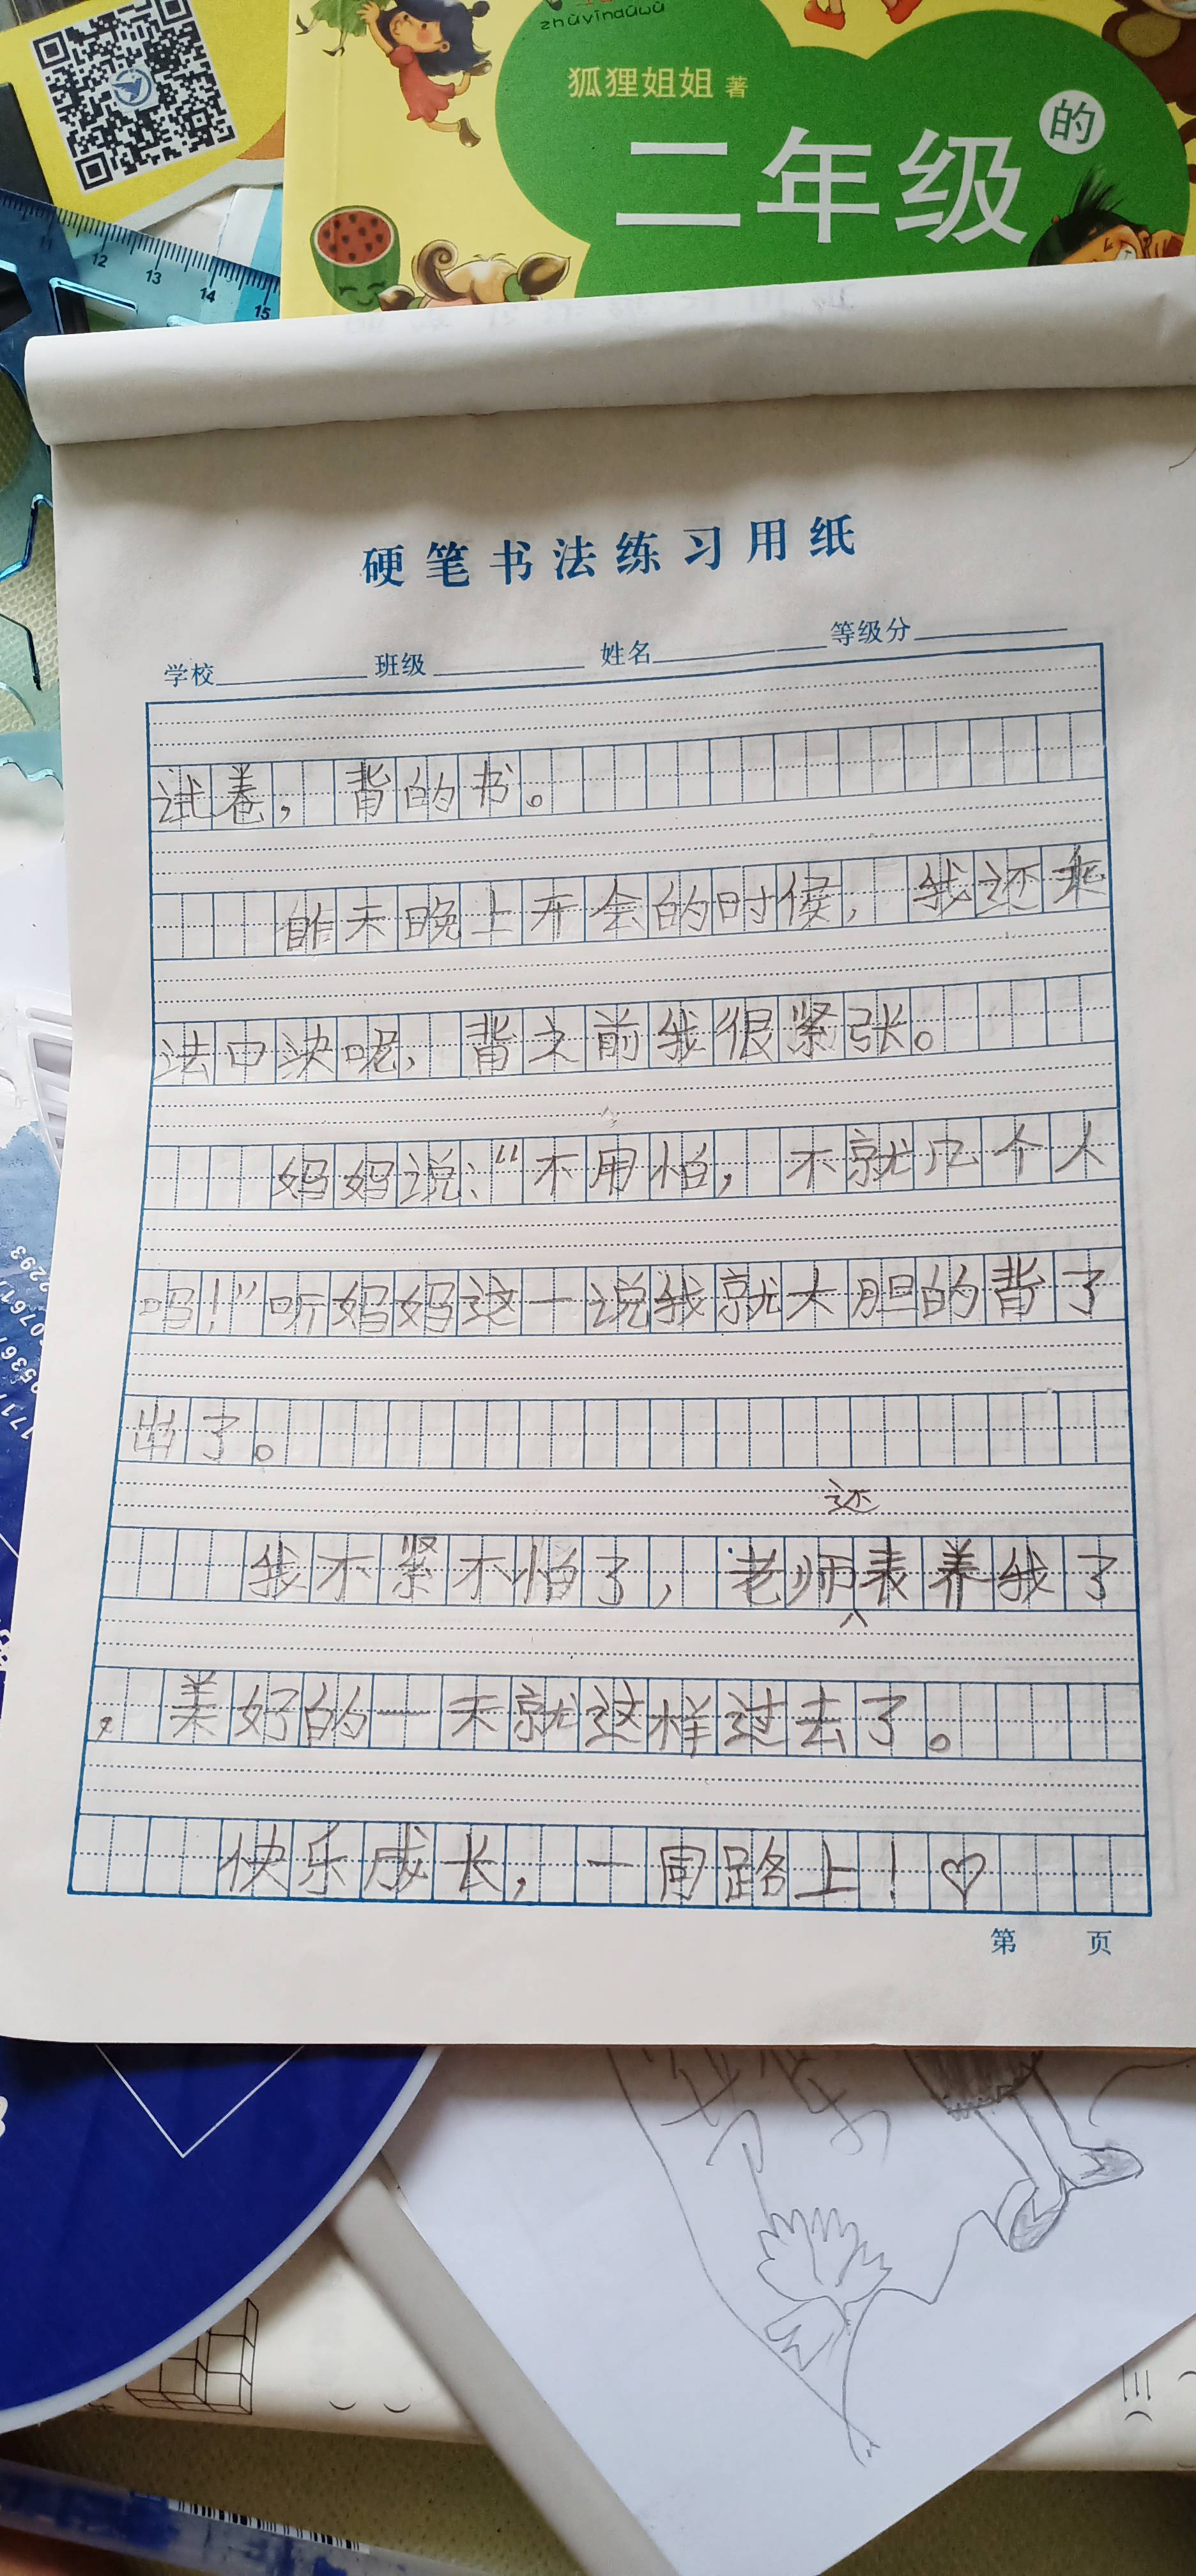 zhùyīndúwù
狐狸姐姐 著
二年级的
11 12 13 14 15
硬笔书法练习用纸
学校 班级 姓名 等级分
试卷，背的书。
昨天晚上开会的时候，我还乘
法口决呢，背之前我很紧张。
妈妈说：“不用怕，不就几个人
吗！”听妈妈这一说我就大胆的背了
出了。
还
我不紧不怕了，老师表养我了
，美好的一天就这样过去了。
快乐成长，一同路上！♡
第 页